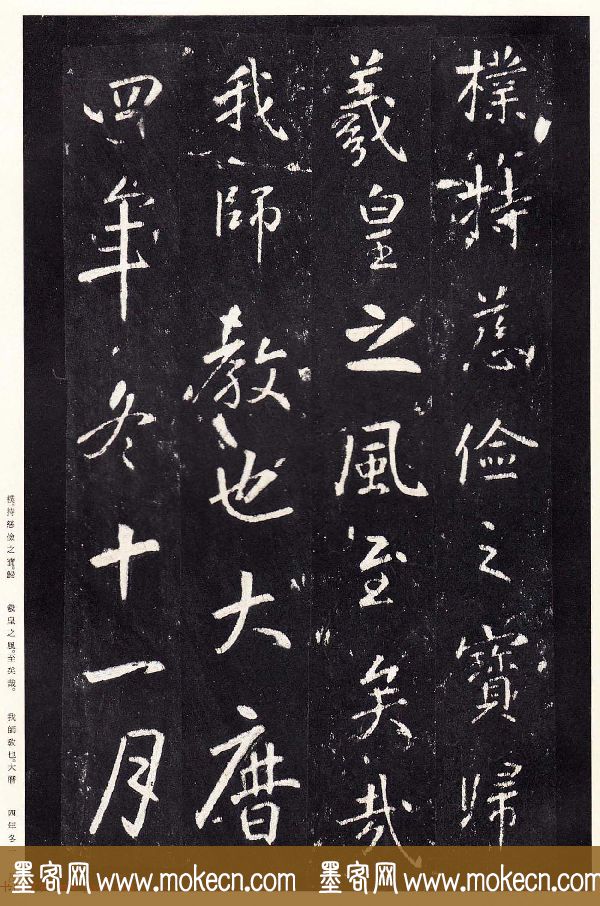 樸持慈儉之寶歸
羲皇之風至矣哉
我師教也大曆
四年冬十一月
樸。持慈儉之寶。歸 羲皇之風。至矣哉。 我師教也。大曆 四年冬
墨客网 www.mokecn.com 墨客网 www.mokecn.com